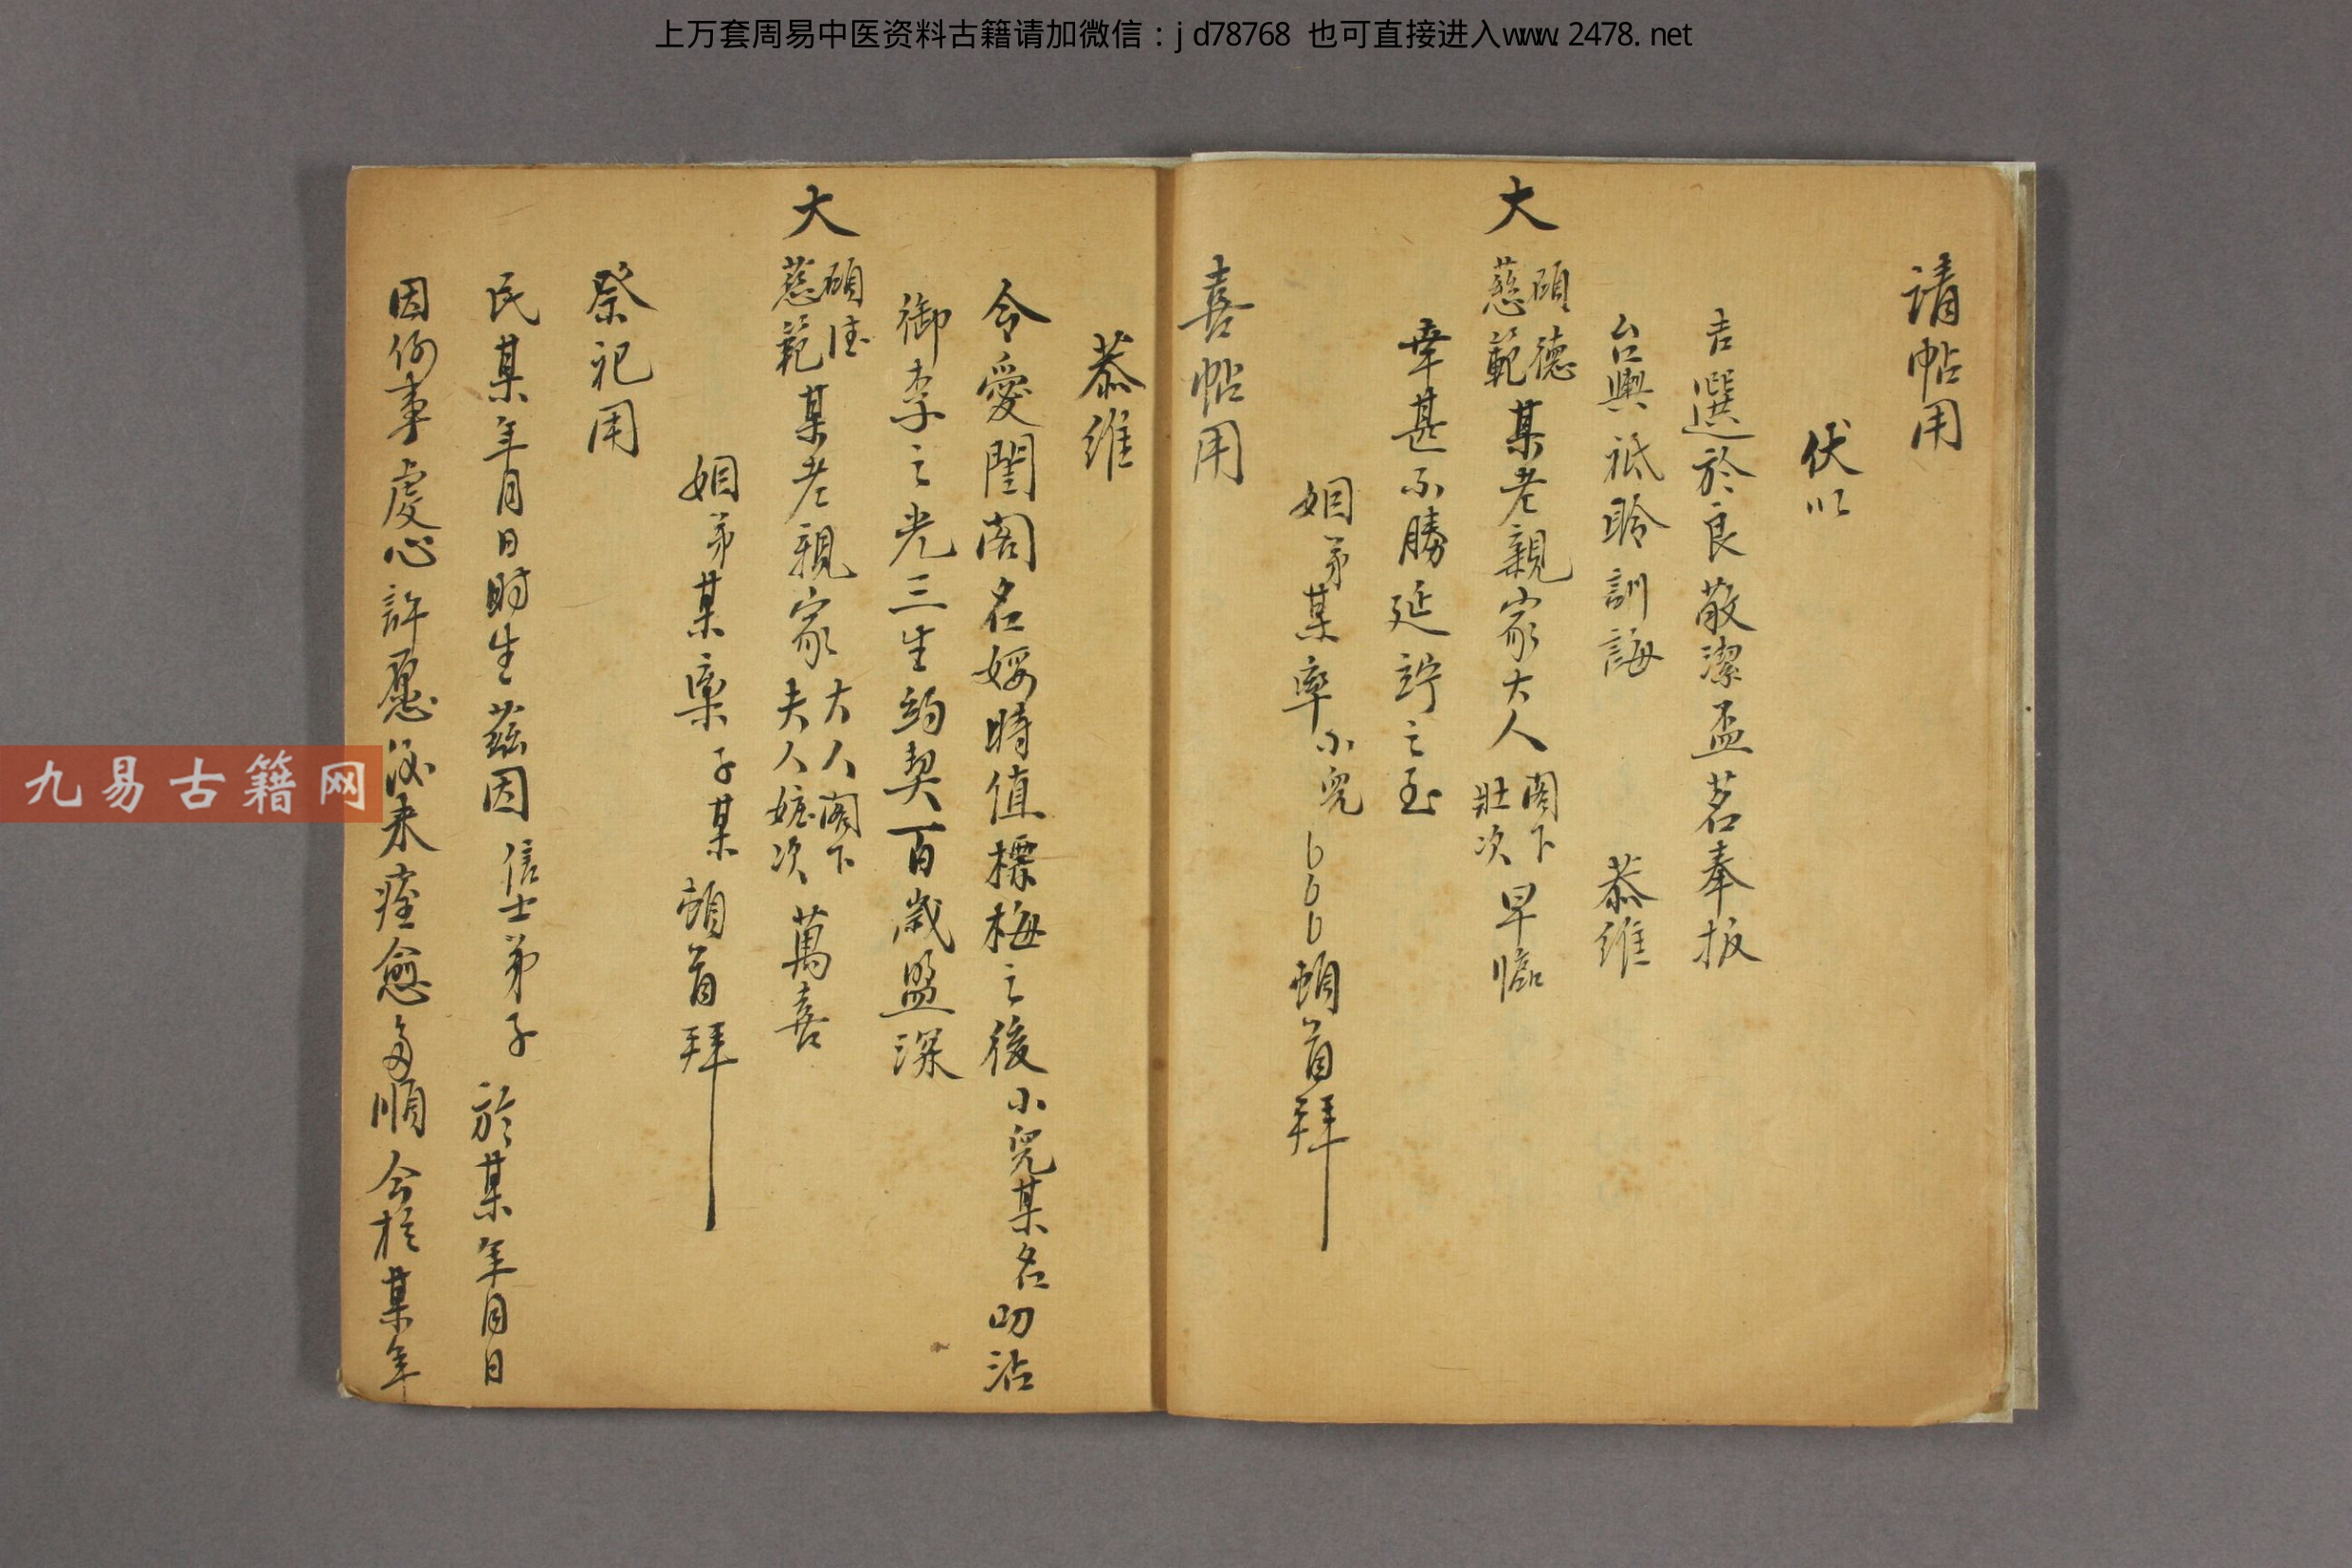 上万套周易中医资料古籍请加微信：jd78768 也可直接进入www.2478.net
請帖用
伏以
吉選於良敬潔盃茗奉扳
台輿祇聆訓誨 恭維
大碩德慈範某老親家大人閣下壯次早臨
幸甚不勝延竚之至
姻弟某率小兒 頓首拜
喜帖用
恭維
令愛閨閣名媛時值標梅之後小兒某名叨沾
御李之光三生約契百歲盟深
大碩德慈範某老親家大人閣下夫人次萬喜
姻弟某稟子某 頓首拜
祭祀用
民某年月日時生茲因信士弟子於某年月日
因何事虔心許愿 痊愈 順今於某年
九易古籍网